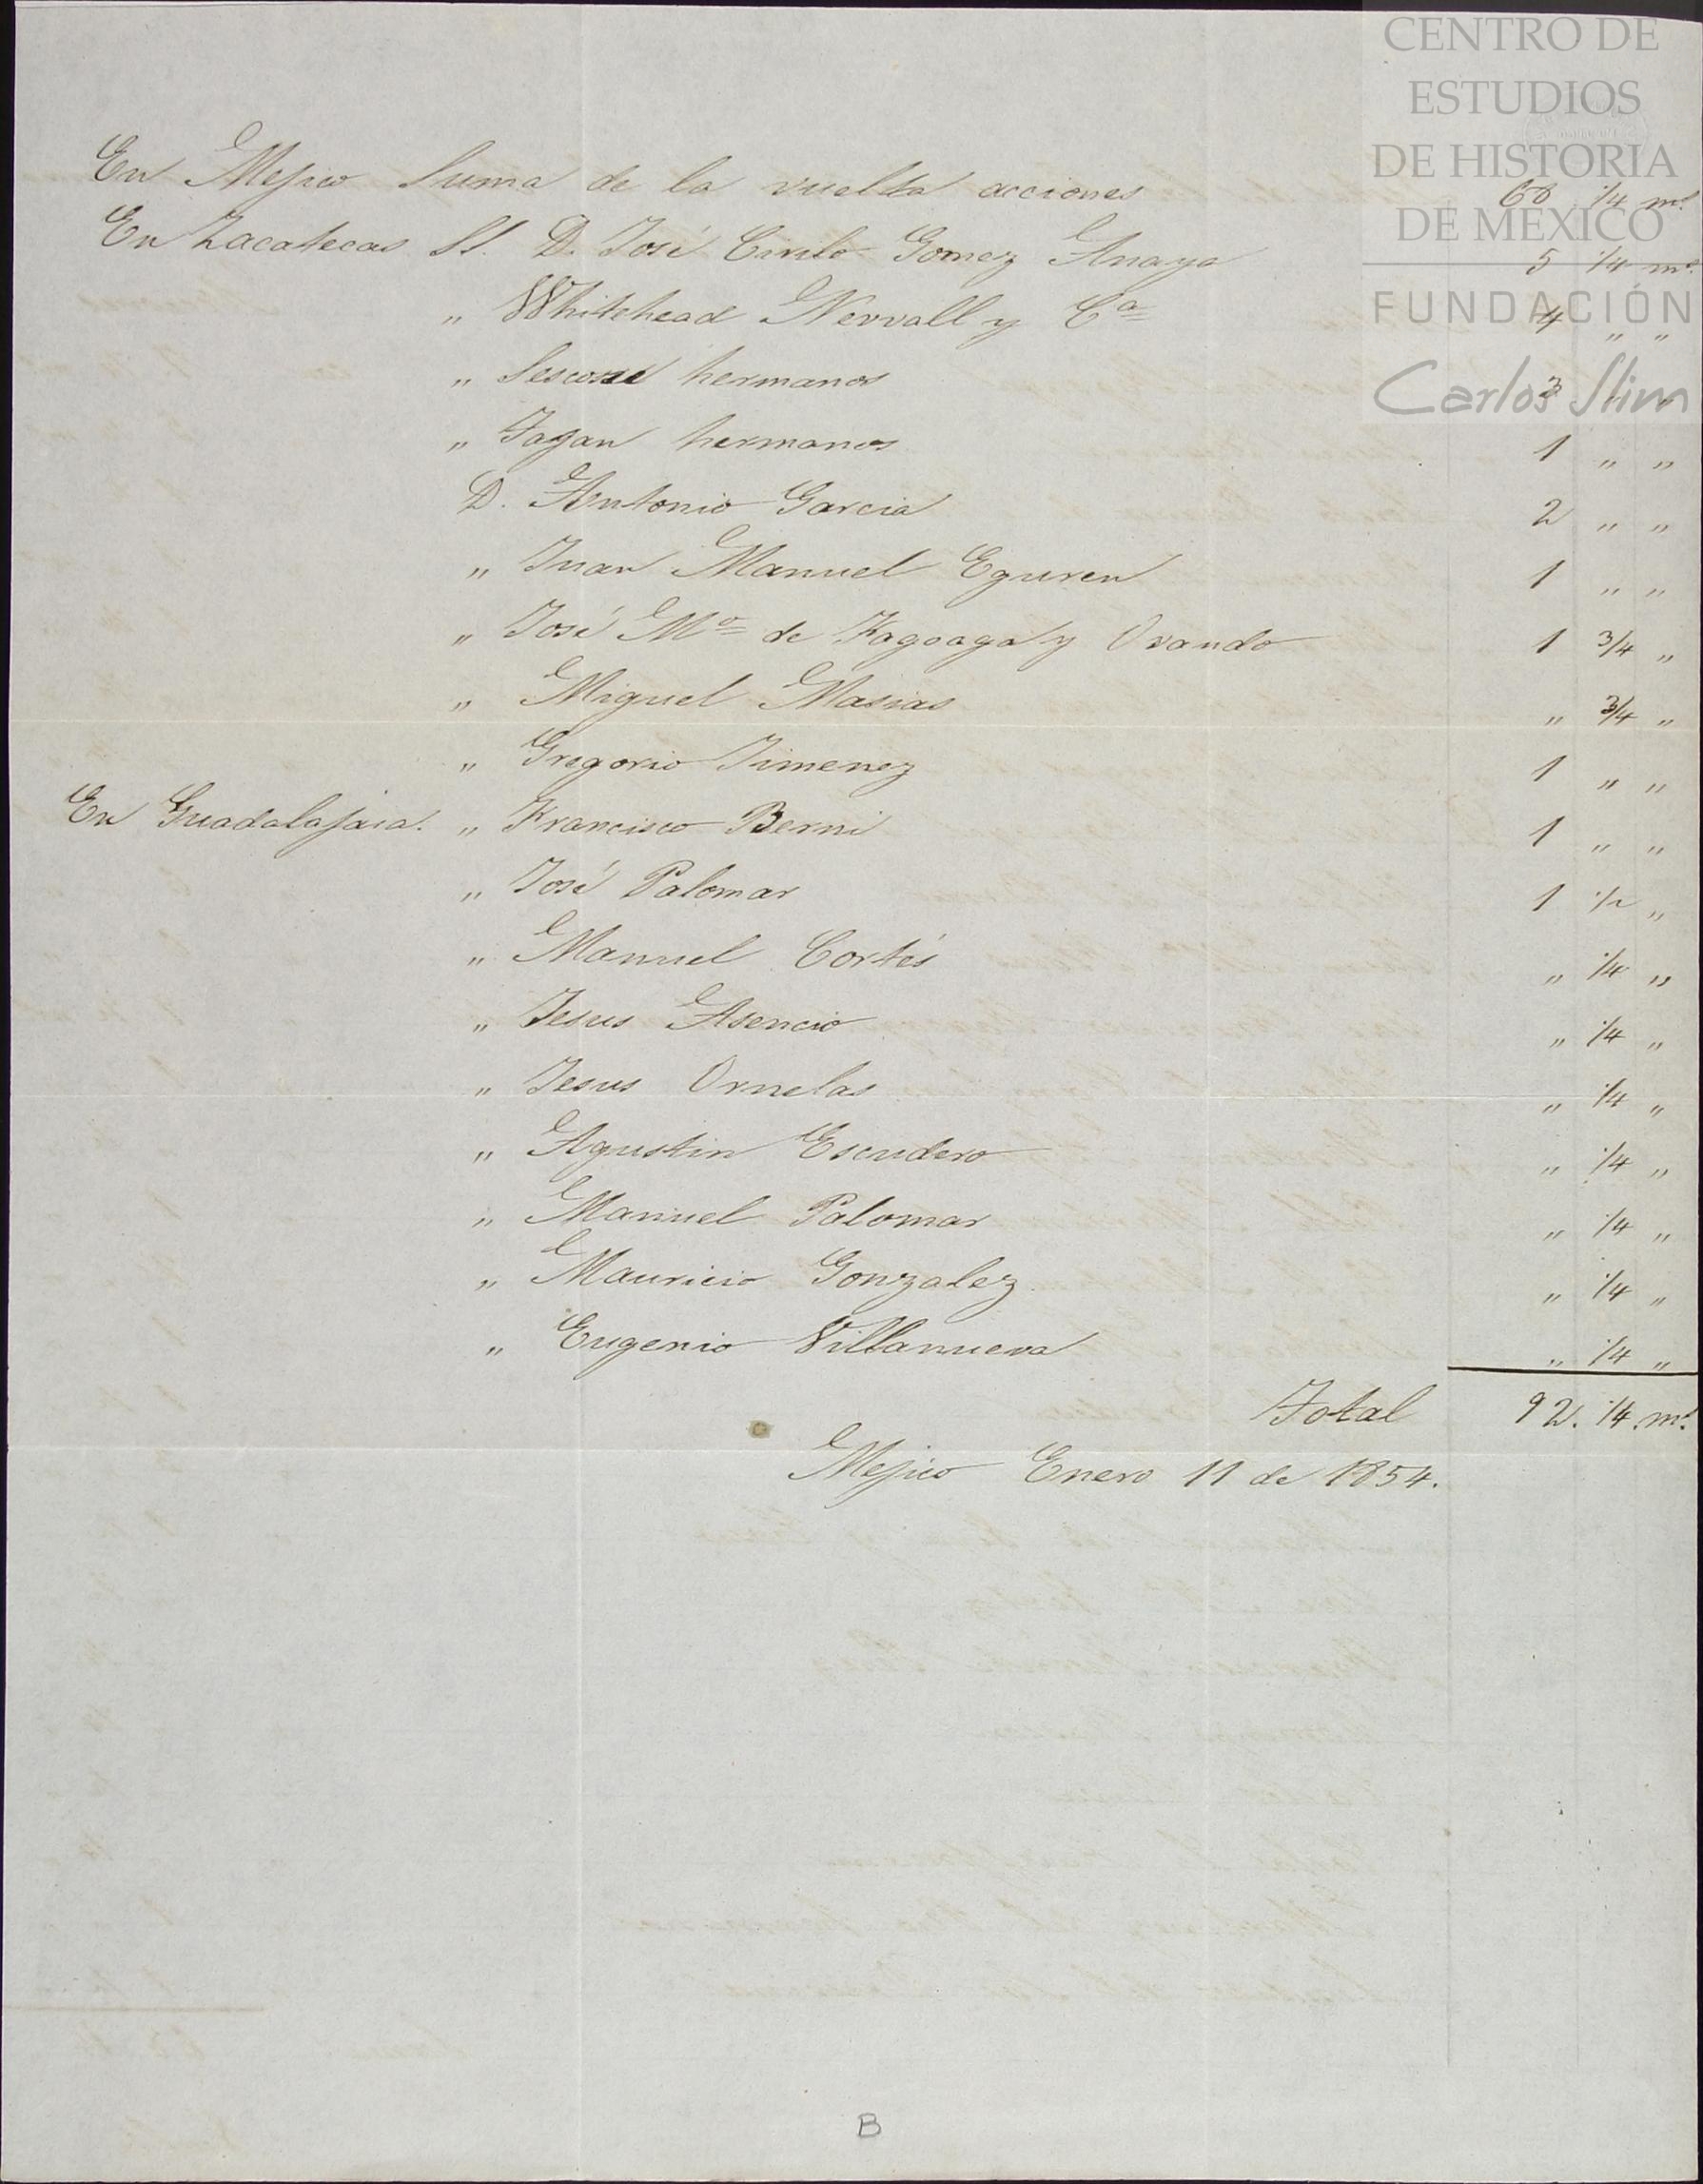 CENTRO DE
ESTUDIOS
DE HISTORIA
DE MÉXICO
FUNDACIÓN
Carlos Slim
En Mejico Suma de la vuelta acciones 68 1/4 ms.
En Zacatecas SS. D. José Cirilo Gomez Anaya 5 1/4 ms.
" Whitehead Newall y Ca 4 " "
" hermanos 3 " "
" hermanos 1 " "
D. Antonio Garcia 2 " "
" Juan Manuel Eguren 1 " "
" José Ma de Fagoaga y Ovando 1 3/4 "
" Miguel Masias " 3/4 "
" Gregorio Jimenez 1 " "
En Guadalajara. " Francisco Berni 1 " "
" José Palomar 1 1/2 "
" Manuel Cortés " 1/4 "
" Jesus Asencio " 1/4 "
" Jesus Ornelas " 1/4 "
" Agustin Escudero " 1/4 "
" Manuel Palomar " 1/4 "
" Mauricio Gonzalez " 1/4 "
" Eugenio Villanueva " 1/4 "
Total 92. 1/4 ms.
Mejico Enero 11 de 1854.
B